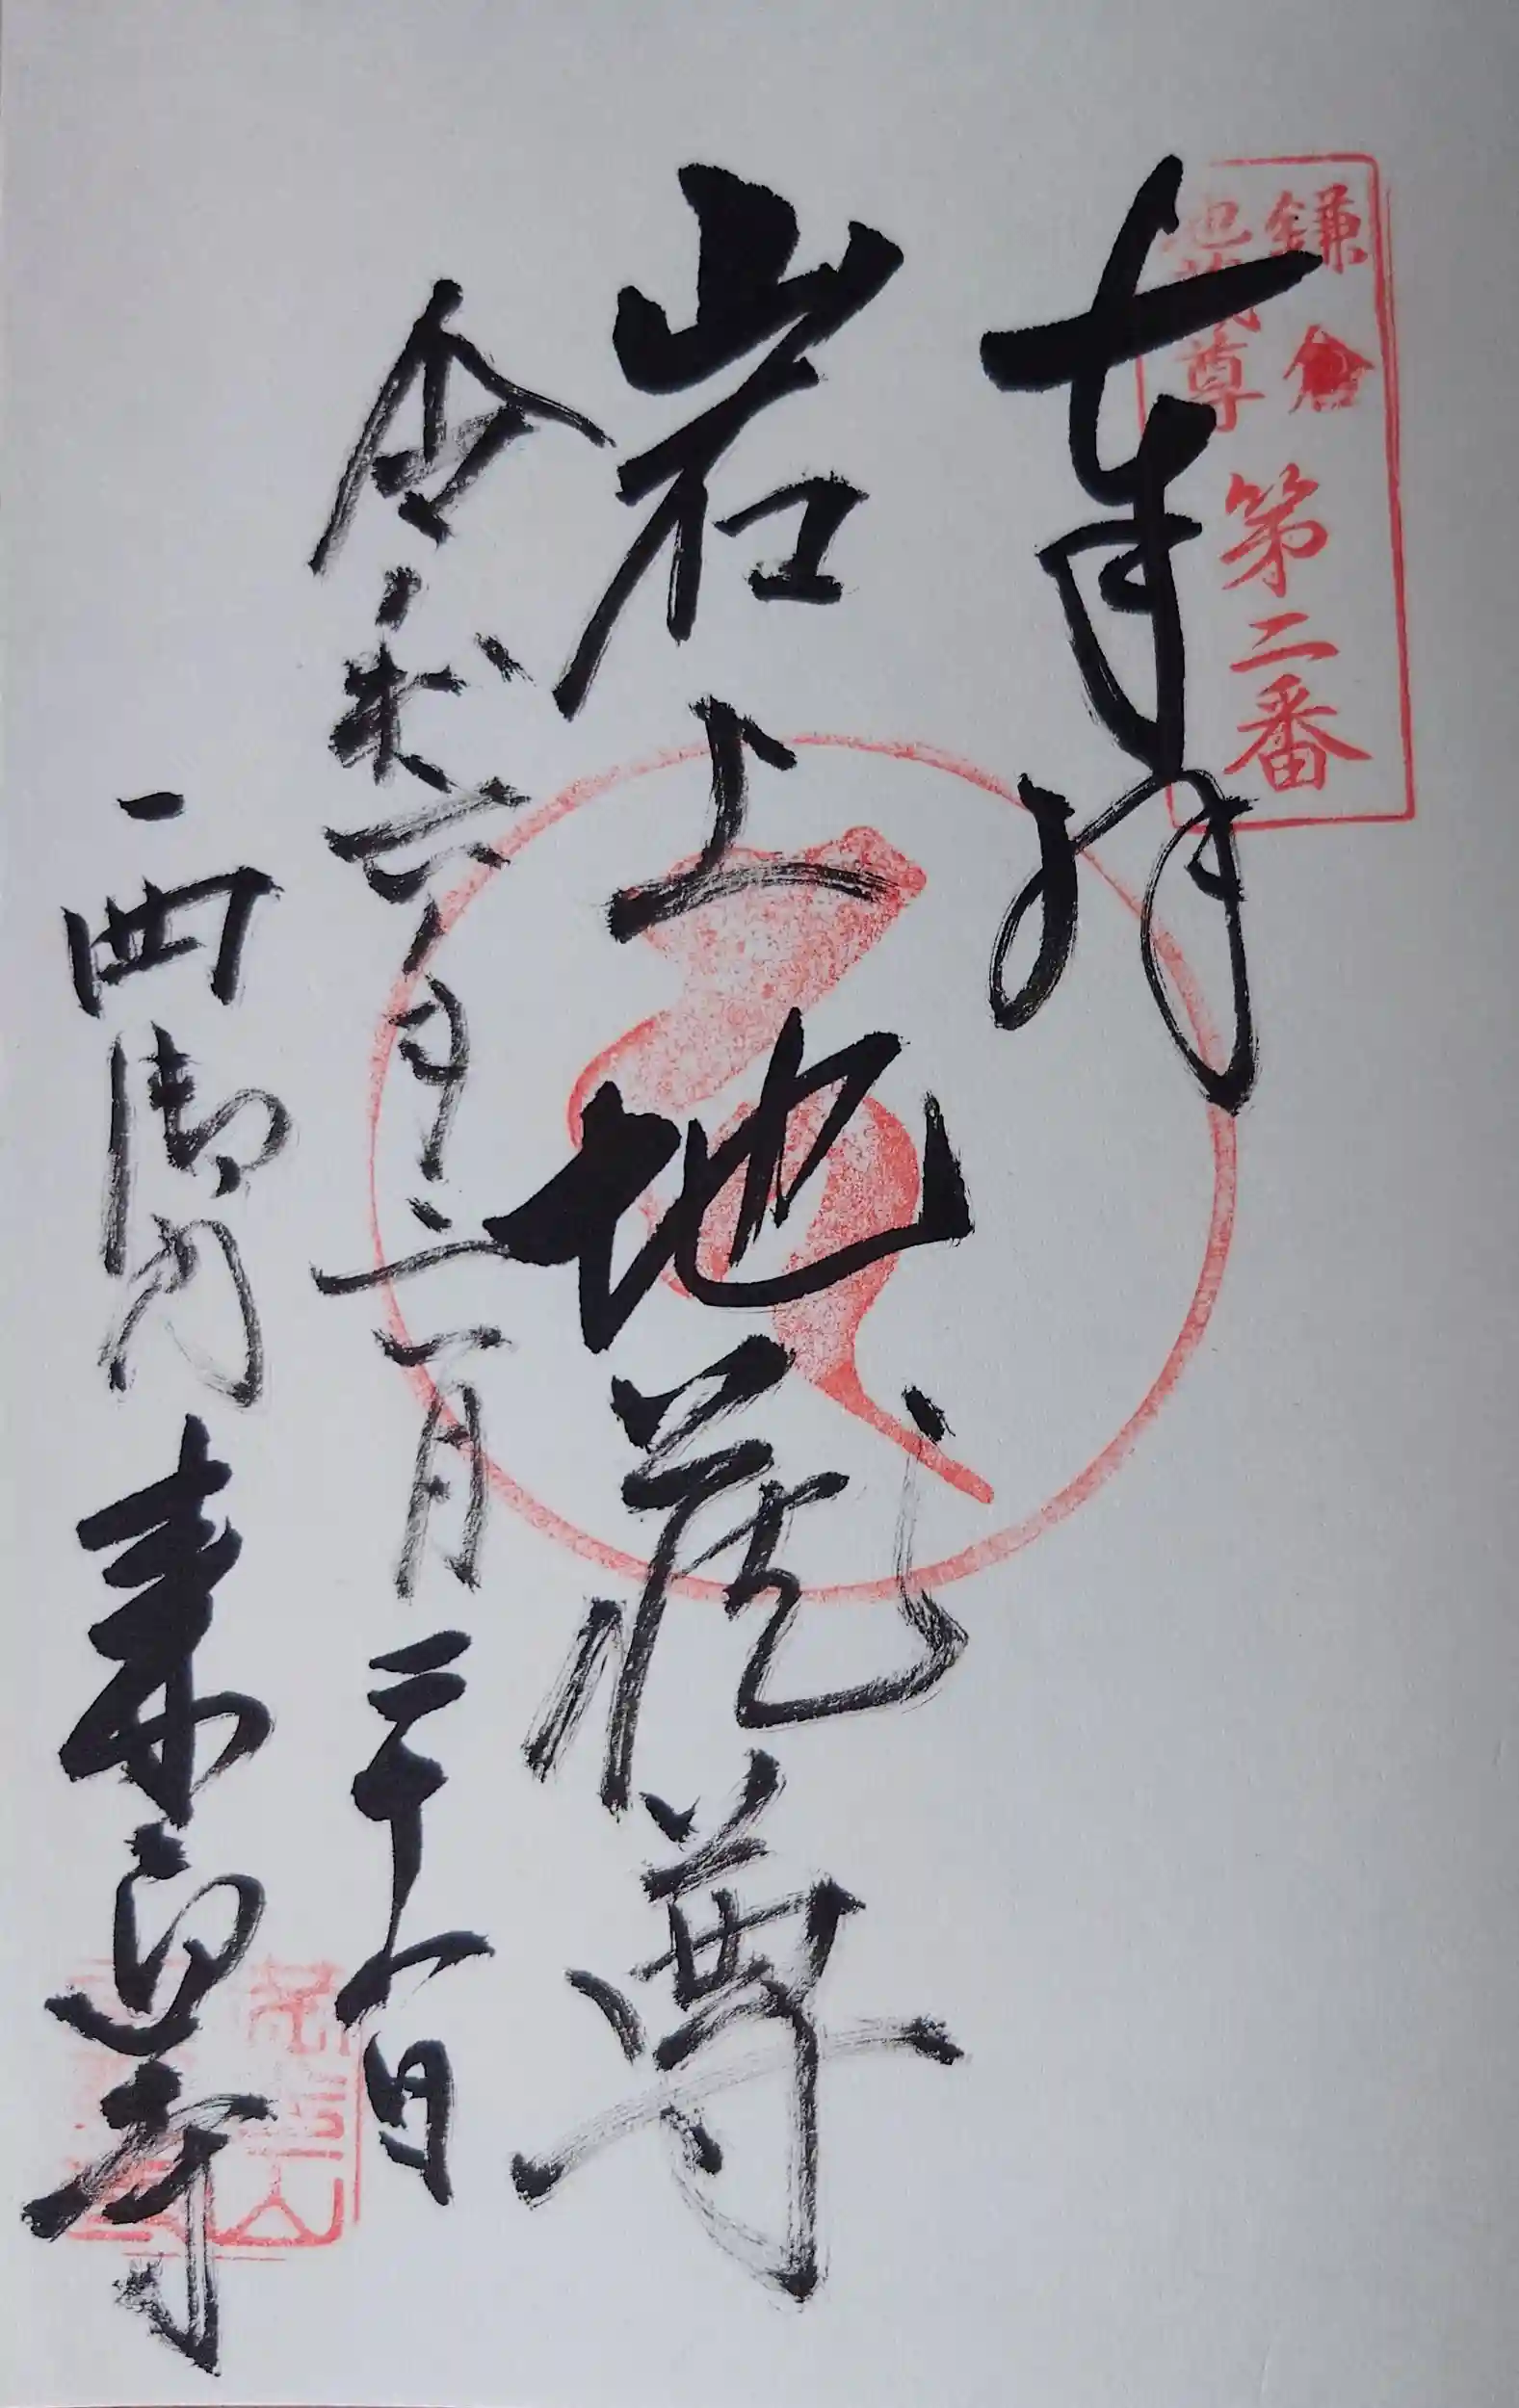 鎌倉
地蔵尊
第二番
奉拝
岩上地蔵尊
令和六年 月二十 日
西御門 来迎寺